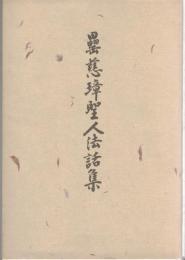 慈璋聖人法話集